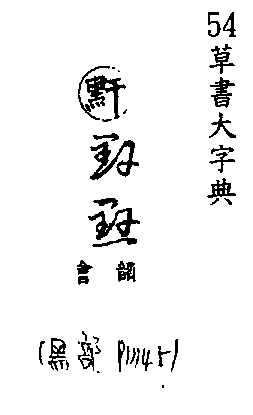 54
草書大字典
䵟
韻會
(黑部 P1145)